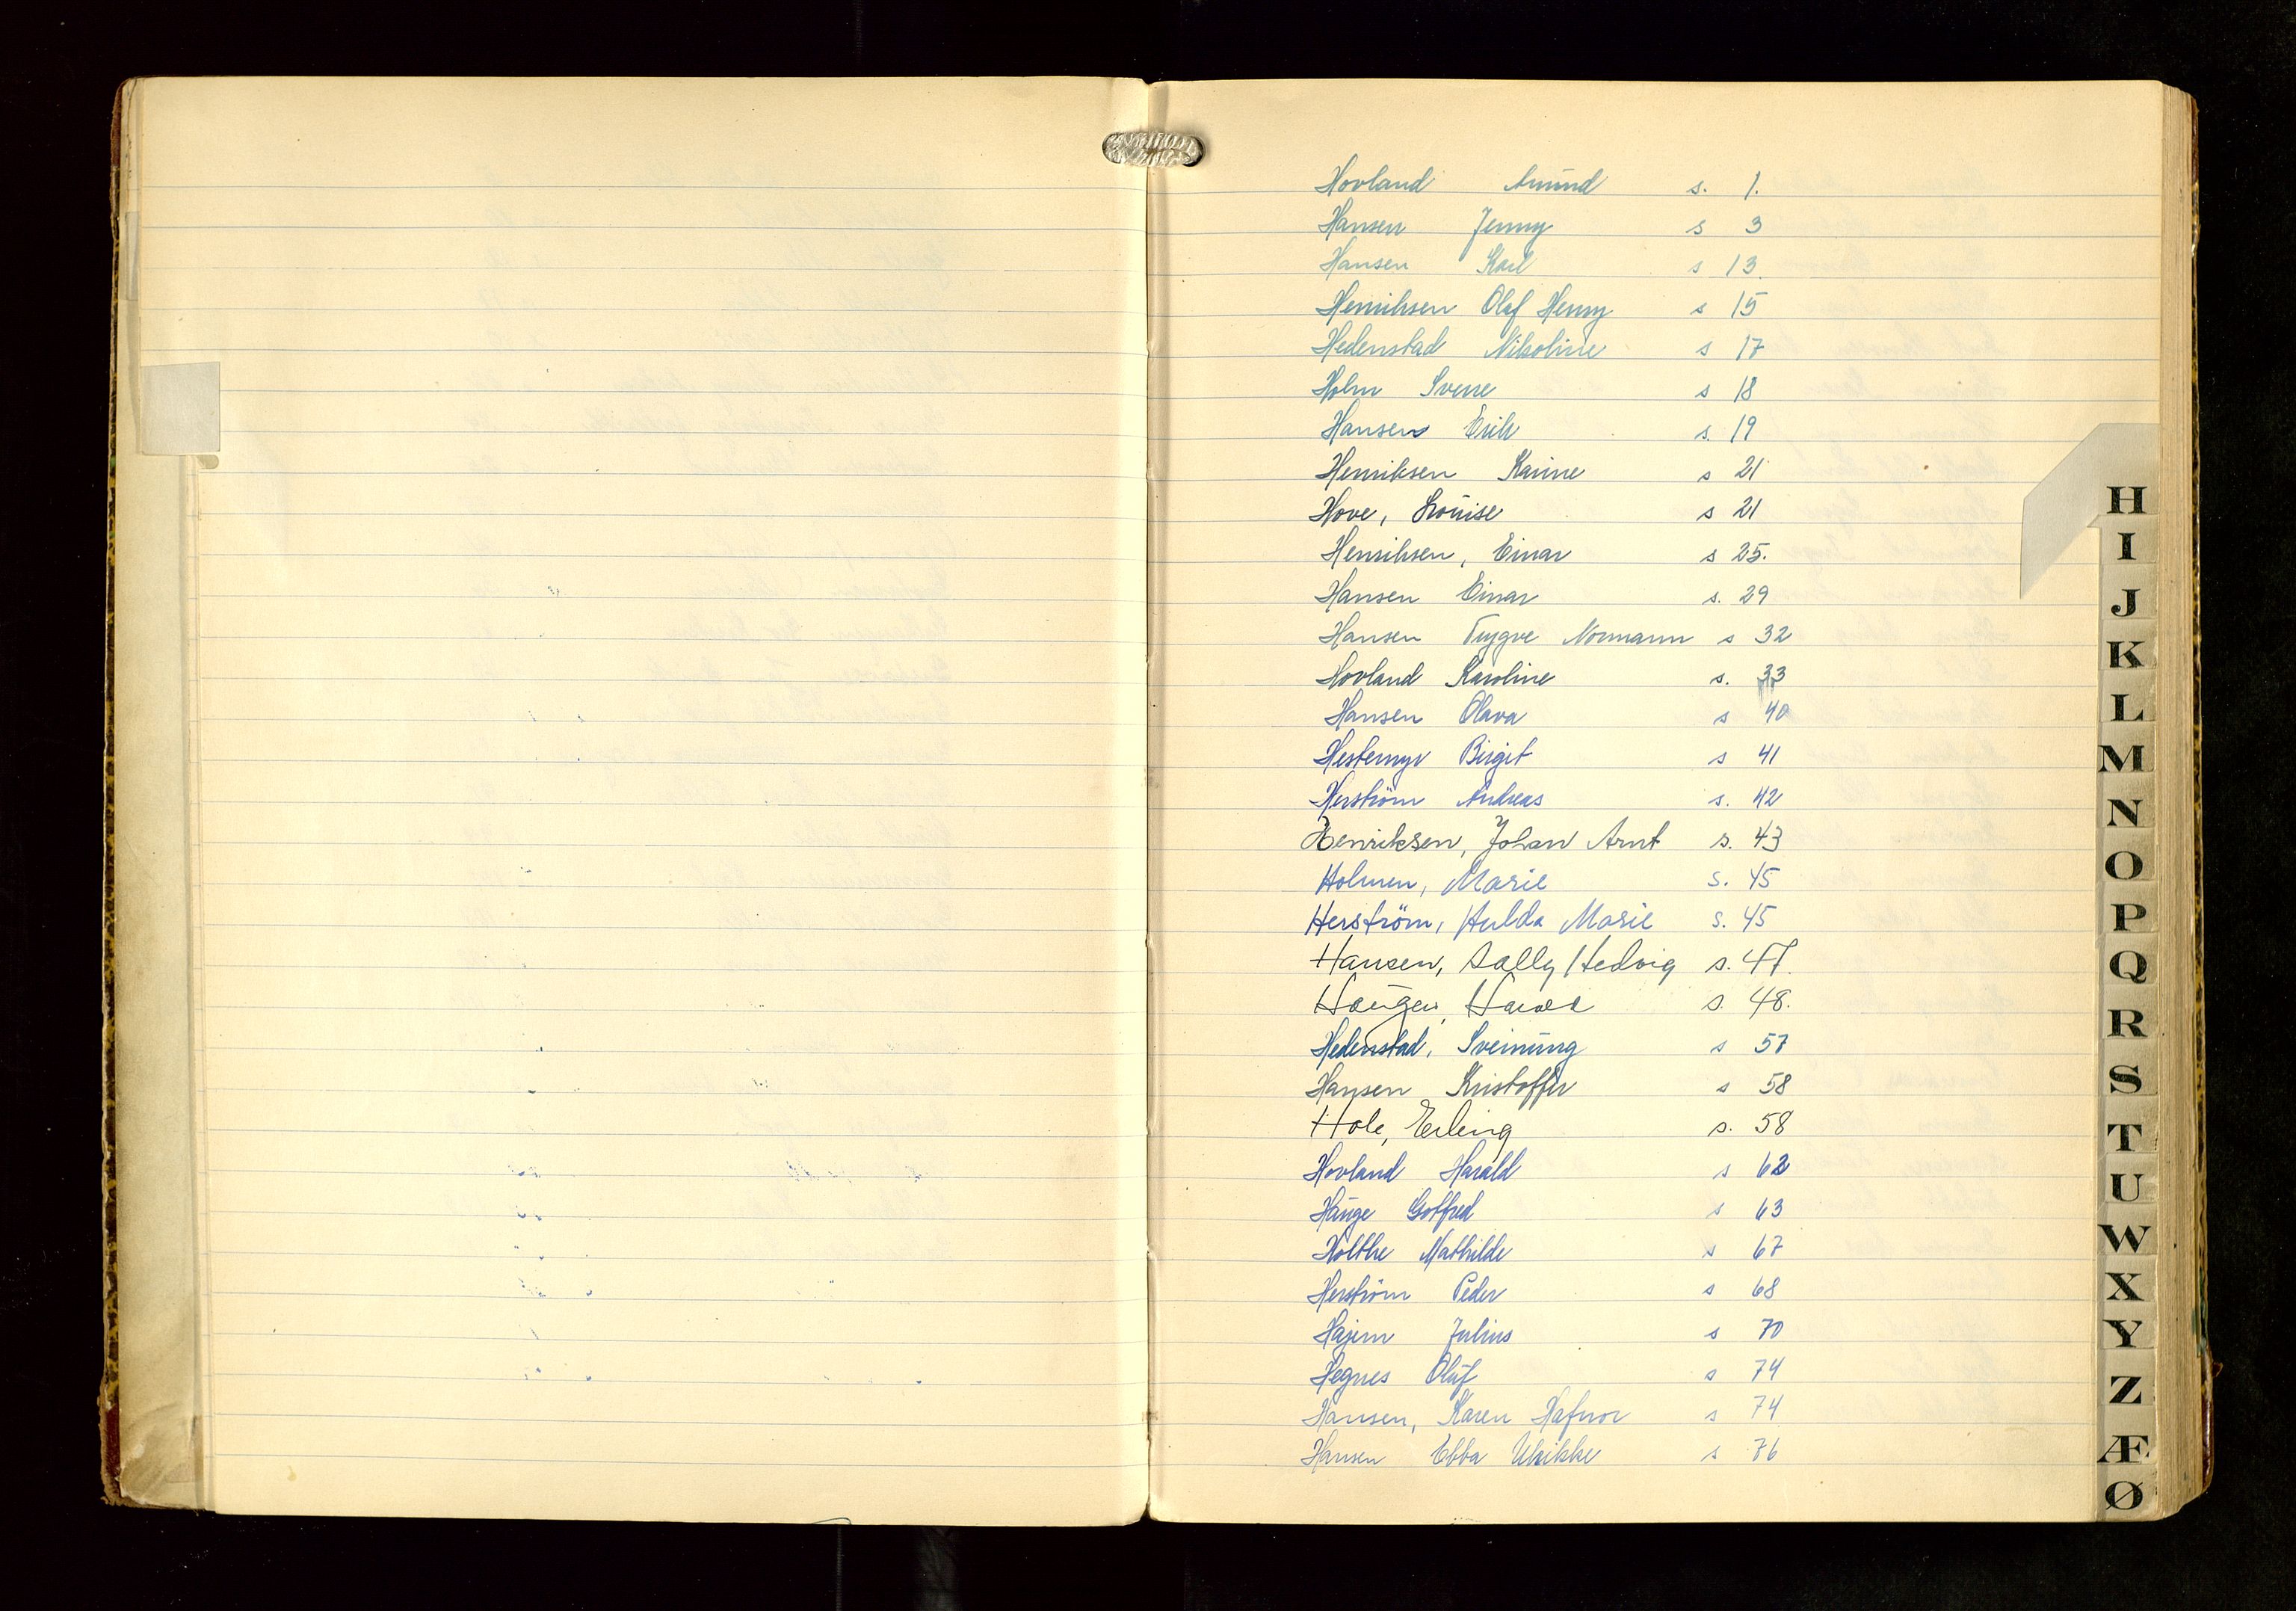 Hovland Anund s. 1.
Hansen Jenny s 3
Hansen Karl s 13.
Henriksen Olaf Henry s 15
Hedenstad Nikoline s 17
Holm Sverre s 18
Hansen Erik s. 19
Henriksen Karine s 21
Hove, Louise s 21
Henriksen, Einar s 25.
Hansen Einar s. 29
Hansen Trygve Normann s 32
Hovland Karoline s. 33
Hansen Olava s 40
Hestemyr Birgit s 41
Herström Andreas s. 42
Henriksen, Johan Arnt s. 43
Holmen, Marie s. 45
Herström, Hulda Marie s. 45
Hansen, Sally Hedvig s. 47.
Haugen, s. 48.
Hedenstad, Sveinung s 57
Hansen Kristoffer s 58
Hole, Erling s. 58
Hovland Harald s 62
Hauge Gotfred s 63
Holthe Mathilde s 67
Herström Peder s 68
Hajem Julius s 70
Hegnes Oluf s 74
Hansen, Karen Hafnor s 74
Hansen Ebba Ulrikke s 76
H
I
J
K
L
M
N
O
P
Q
R
S
T
U
W
X
Y
Z
Æ
Ø